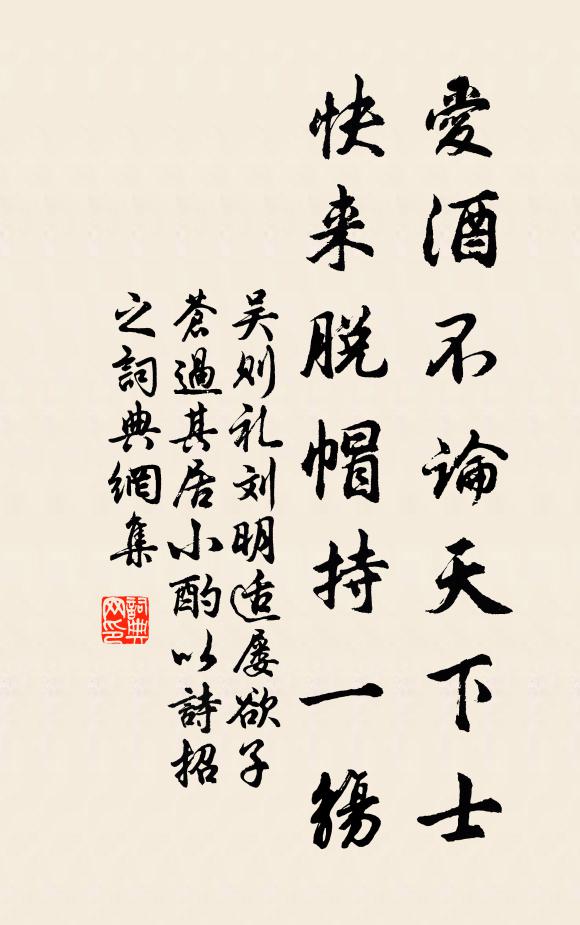 愛酒不論天下士
快来脱帽持一觴
吴则礼刘明适屡欲子
蒼過其居小酌以詩招
之詞典網集
詞典网印